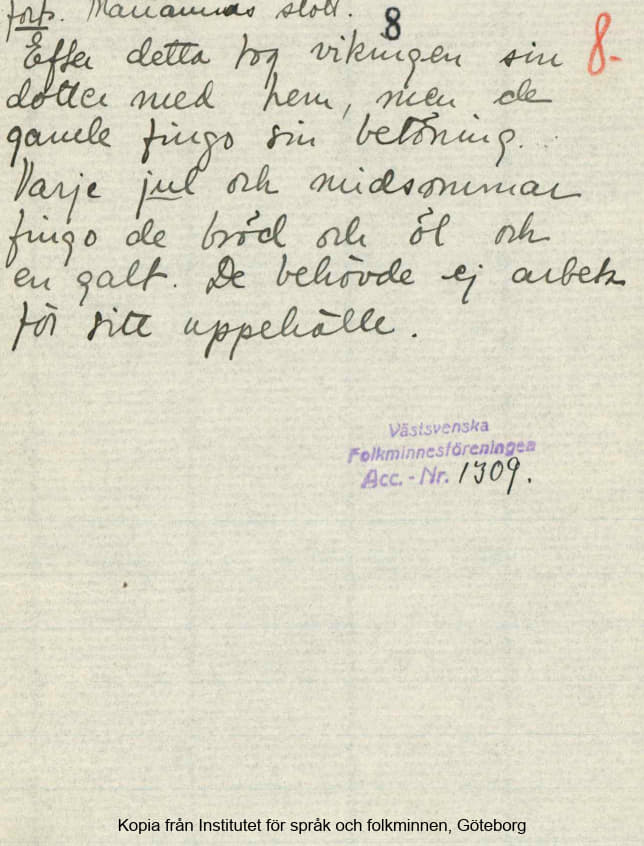 forts. Mariannas slott. 8
Efter detta tog vikingen sin 8-
dotter med hem, men de
gamle fingo sin belöning.
Varje jul och midsommar
fingo de bröd och öl och
en galt. De behövde ej arbeta
för sitt uppehälle.
Västsvenska
Folkminnesföreningen
Acc. - Nr. 1309.
Kopia från Institutet för språk och folkminnen, Göteborg